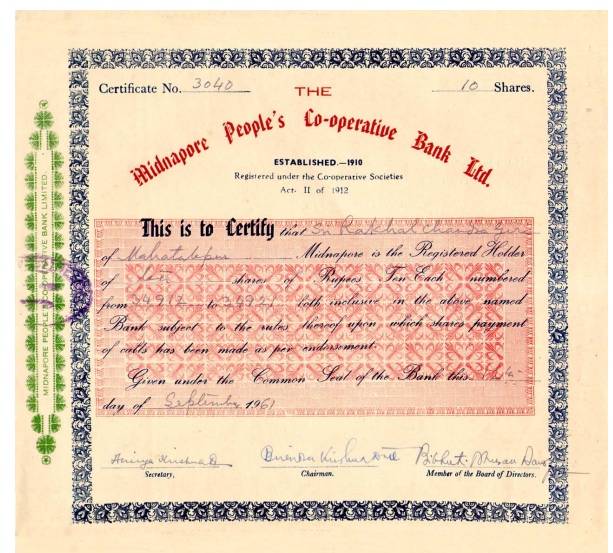 Certificate No. 3040
10 Shares.
THE
Midnapore People's Co-operative Bank Ltd.
ESTABLISHED.—1910
Registered under the Co-operative Societies
Act. II of 1912
This is to Certify that Sri Rakhal Chandra Giri
of Mahatabpur Midnapore is the Registered Holder
of shares of Rupees Ten Each numbered
from 34912 to 34921 both inclusive in the above named
Bank subject to the rules thereof upon which shares payment
of calls has been made as per endorsement.
Given under the Common Seal of the Bank this
day of September 1961
Secretary,
Chairman.
Member of the Board of Directors.
MIDNAPORE PEOPLE'S CO-OPERATIVE BANK LIMITED.